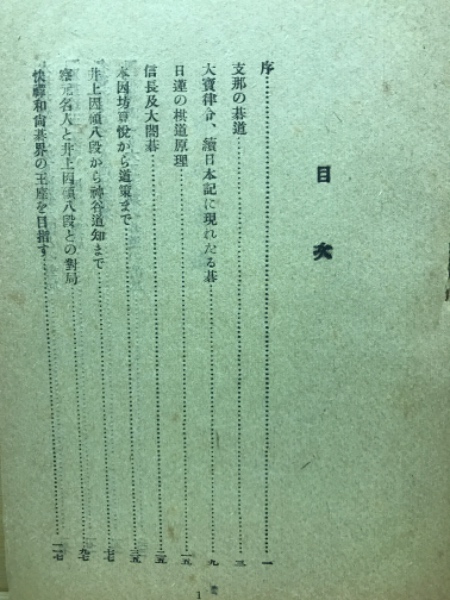 目次
序……一
支那の碁道……三
大寶律令、續日本記に現れたる碁……九
日蓮の棋道原理……一五
信長及太閤碁……二五
本因坊算悅から道策まで……三五
井上因碩八段から神谷道知まで……七七
察元名人と井上因碩八段との對局……九七
快禪和尙碁界の王座を目指す……一一七
1